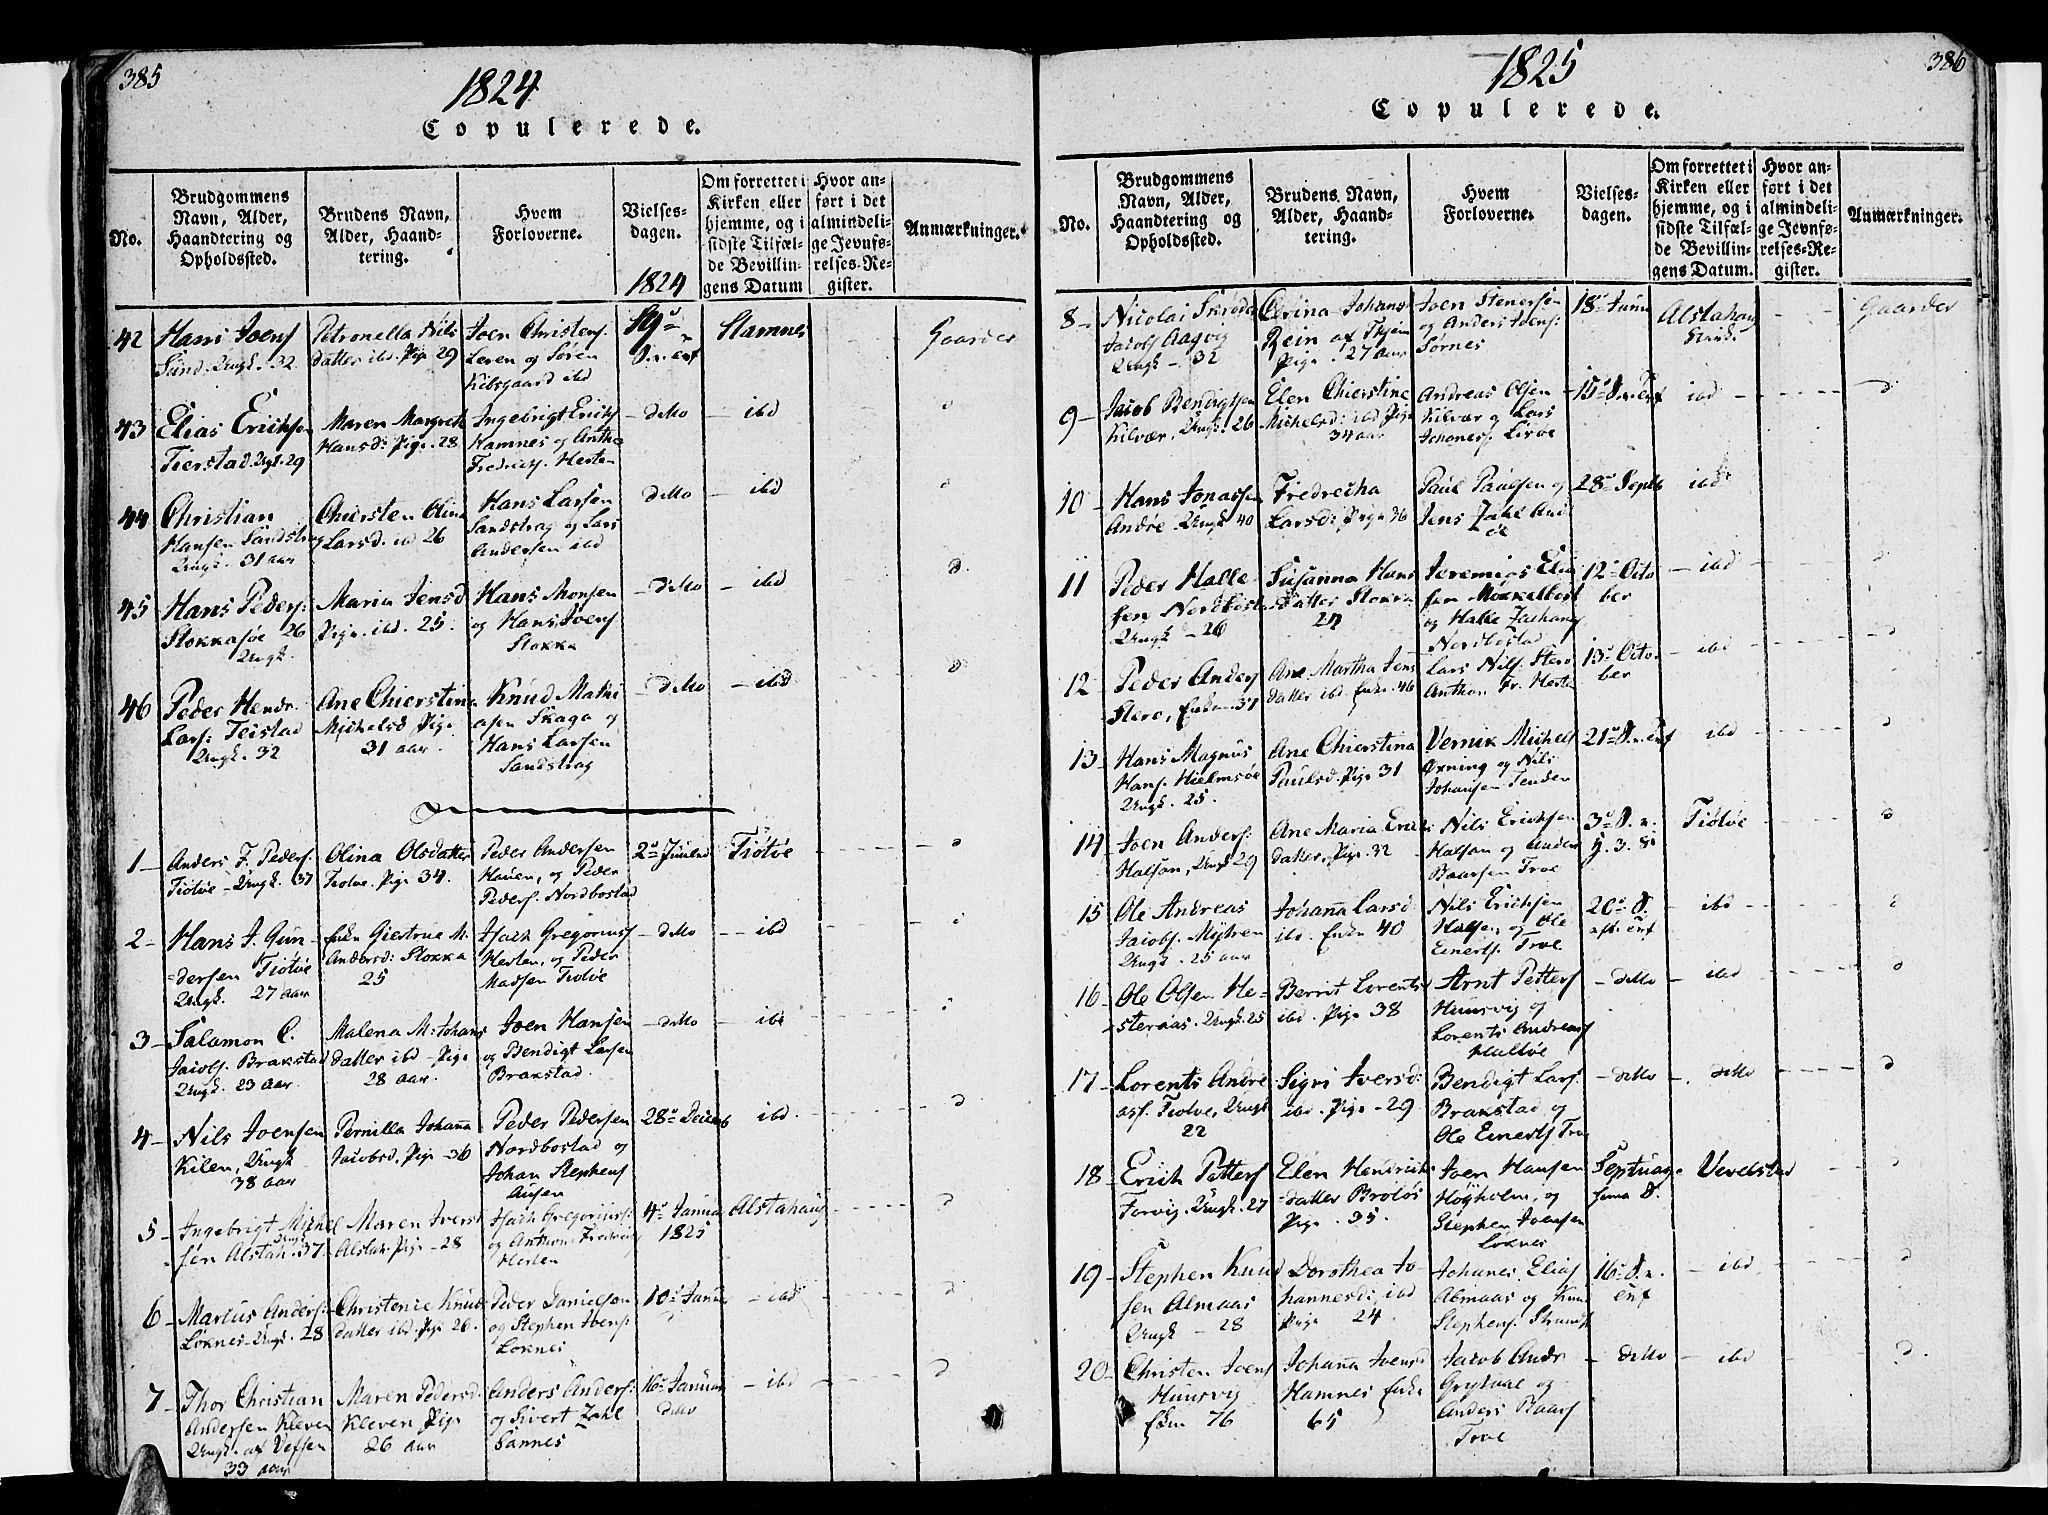 385
1824
Copulerede.
No.
Brudgommens Navn, Alder, Haandtering og Opholdssted.
Brudens Navn, Alder, Haandtering.
Hvem Forloverne.
Vielsesdagen.
1824
Om forrettet i Kirken eller hjemme, og i sidste Tilfælde Bevillingens Datum
Hvor anført i det almindelige Jevnførelses-Register.
Anmærkninger.
42 Hans Joens Sund. Ungk. 32 Petronella Nils datter ibd. Pige 29 Joen Christens Leren og Sören Kibsgaard ibd Stamnes Gaarder
43 Elias Erichsen Tierstad. Ungk. 29 Maren Margreth Hansd: Pige. 28 Ingebrigt Erichs Hamnes og Antho Fredrichs. Herten ditto ibd
44 Christian Hansen Sandstrag Ungk. 31 aar Chiersten Olina Larsd. ibd 26 Hans Larsen Sandstrag og Lars Andersen ibd ditto ibd
45 Hans Peders: Stokkasöe 26 Ungk. Maria Jensd Pige. ibd. 25. Hans Monsen og Hans Joens Stokka ditto ibd
46 Peder Hendr. Lars: Teistad Ungk. 32 Ane Chierstina Michelsd Pige 31 aar Knud Mathiasen Skaga og Hans Larsen Sandstrag ditto ibd
1 Anders F. Peders. Tiötöe - Ungk. 37 Olina Olsdatter Tiotöe. Pige 34. Peder Andersen Hauen, og Peder Peders. Nordbostad Tiötöe
2 Hans J. Gundersen Tiötöe Ungk. 27 aar Enke Giertrue M. Andersd: Stokka 25 Isach Gregorius Herten, og Peder Madsen Tiotöe ditto ibd
3 Salamon C. Jacobs. Brakstad Ungk. 23 aar Malena M: Johans datter ibd - Pige 28 aar. Joen Hansen og Bendigt Larsen Brakstad. ditto ibd
4 Nils Joensen Kilen, Ungk 38 aar Pernilla Johanna Jacobsd. Pige 36 Peder Pedersen Nordbostad og Johan Stephens Ausen 28de Decemb ibd.
5 Ingebrigt Michelsen Alstah. Ungk 37. Maren Iversd Alstah. Pige - 28 Isach Gregorius: og Anthon Fredrichs Herten 4de Janua 1825 Alstahaug
6 Marius Anders: Löknes - Ungk. 28 Christence Knuds datter ibd. Pige 26. Peder Danielsen og Stephen Joens: Loknes 10de Janua ibd
7 Thor Christian Andersen Kleven Ungk. af Vefsen 33 aar Maren Pedersd. Kleven Pige 26 aar Anders Anders: og Sivert Zahl Sannes 16de Januar ditto ibd
386
1825
Copulerede.
No.
Brudgommens Navn, Alder, Haandtering og Opholdssted.
Brudens Navn, Alder, Haandtering.
Hvem Forloverne.
Vielsesdagen.
Om forrettet i Kirken eller hjemme, og i sidste Tilfælde Bevillingens Datum.
Hvor anført i det almindelige Jevnførelses-Register.
Anmærkninger.
8 Nicolai Jacobs Aagvig Ungk - 32 Rein Pige. 27 aar Joen Stenersen og Anders Joens: Sörnes Alstahaug Gaarder
9 Jacob Bendigtsen Kilvær, Ungk. 26 Elen Chierstine Michelsd: ibd Pige 34 aar Andreas Olsen Kilvær og Lars Johanes. ibd
10 Hans Jonassen Andöe Ungk 40 Fredricha Larsd: Pige 36 Paul Paulsen og Jens Zahl Andöe 28de Septb ibd
11 Peder Hallesen Nordbostad Ungk - 26 Susanna Hans datter Stokka 24 Jeremias Eliasen og Halle Zachar Nordbostad 12te October ibd
12 Peder Anders Stere, Enkem. 37 Ane Martha Jens datter ibd Enke. 46 Lars Nils. Stero Anthon Fr. Herten 13de October ibd
13 Hans Magnus Hans. Hielmsöe Ungk. 25. Ane Chierstina Paulsd. Pige 31 Vernik Michels Oxning og Nils Johansen Tenden ibd
14 Joen Anders: Halsan, Ungk 29 Ane Maria Erichs datter, Pige. 32 Nils Erichsen Halsan og Anders Baarsen Troe Tiötöe
15 Ole Andreas Jacobs. Ungk. 25 aar Johanna Larsd ibd. Enke 40 Nils Erichsen Halsen og Ole Einerts. Troe ibd
16 Ole Olsen Hesteraas. Ungk. 25 Berrit Lorents ibd. Pige 38 Arnt Petters Huusvig og Lorents Andreas ditto ibd
17 Lorents Andreas. Tiotöe, Ungk 22 Sigri Iversd: ibd. Pige - 29 Bendigt Lars: Brakstad og Ole Einerts Troe ditto ditto
18 Erich Petters Forvig. Ungk. 27 Elen Hendrichs datter Bröløs Pige. 35. Joen Hansen Höyholm, og Stephen Joensen Løknes Septuagesima Vevelstad
19 Stephen Knudsen Almaas Ungk - 28 Dorothea Johannesd: ibd Pige 24 Johanes Elias Almaas og Knud Stephens. ibd
20 Christen Joens Huusvig Ekm 76 Johanna Iversd Hamnes Enke 65 Jacob Andr Grytaae og Anders Baars Troe ditto ibd